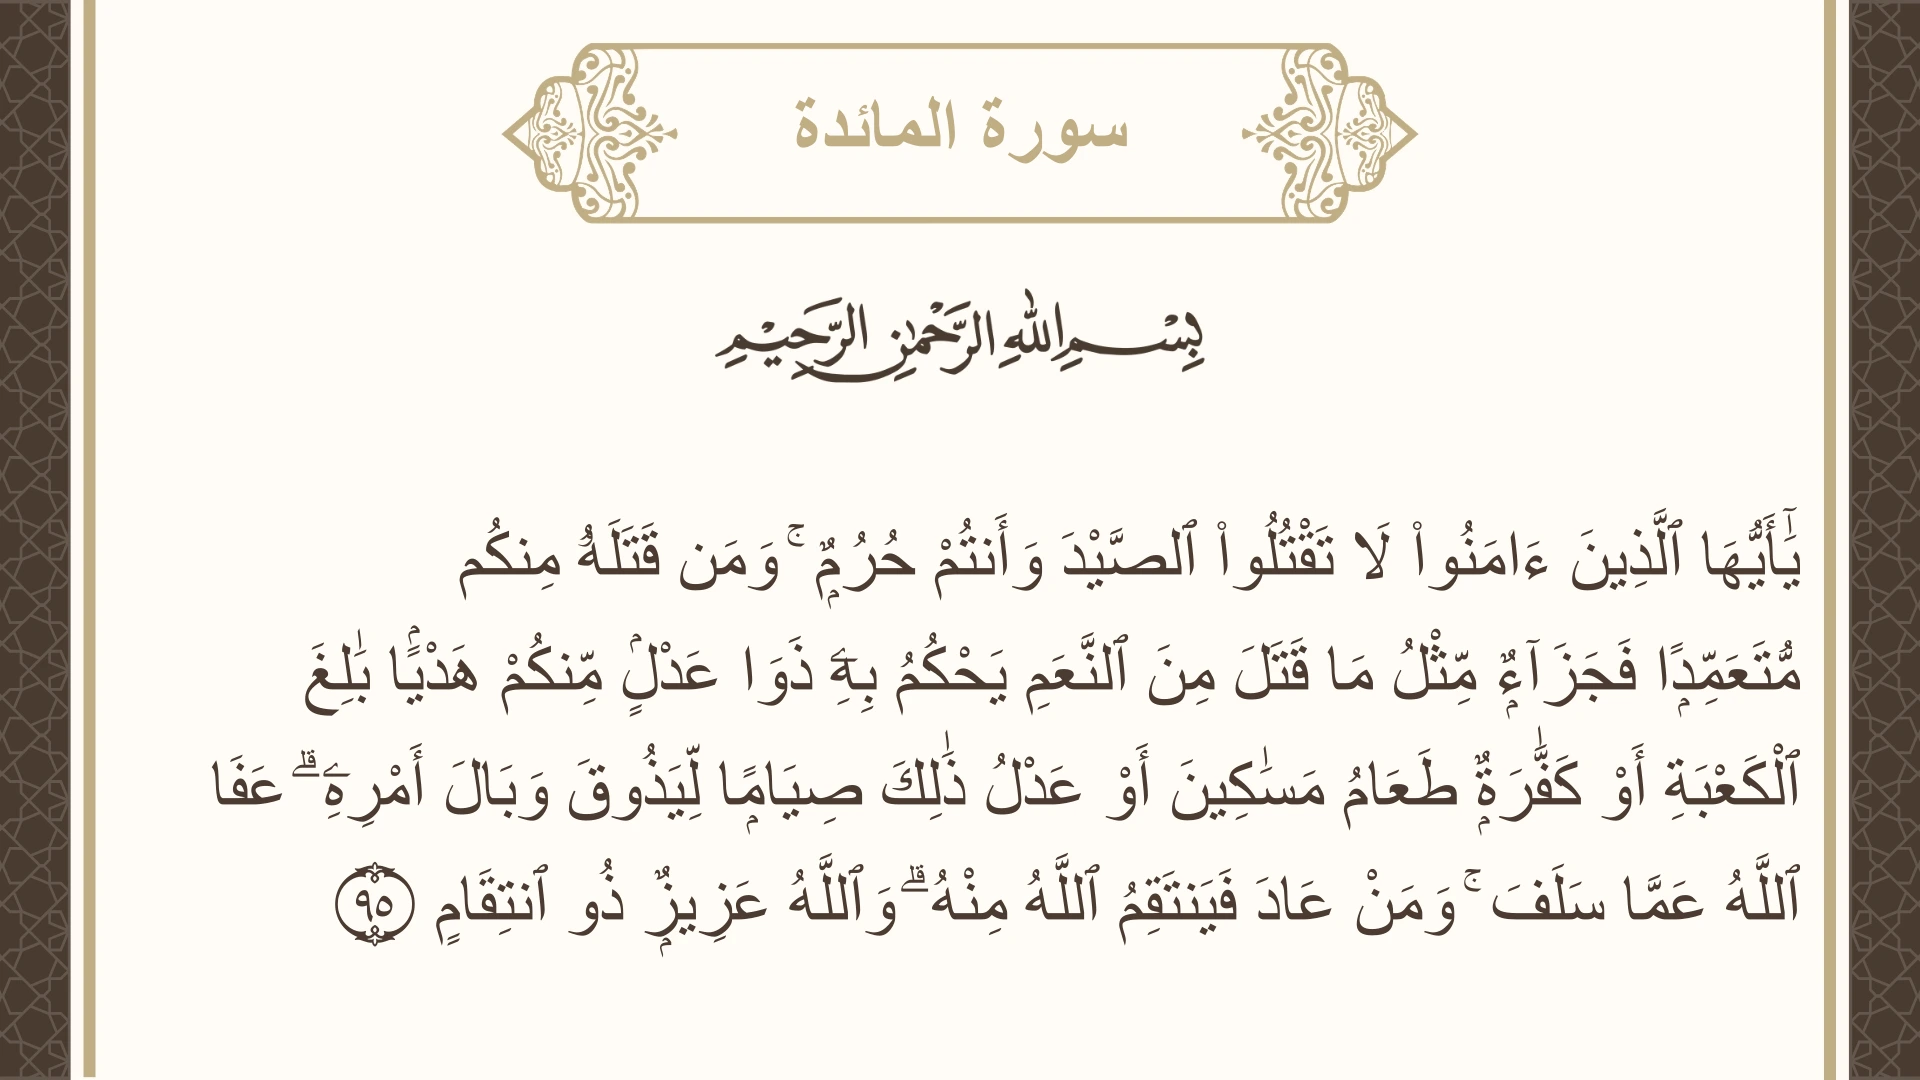 سورة المائدة
بِسْمِ اللهِ الرَّحْمٰنِ الرَّحِيْمِ
يَٰٓأَيُّهَا ٱلَّذِينَ ءَامَنُوا۟ لَا تَقْتُلُوا۟ ٱلصَّيْدَ وَأَنتُمْ حُرُمٌۭ ۚ وَمَن قَتَلَهُۥ مِنكُم
مُّتَعَمِّدًۭا فَجَزَآءٌۭ مِّثْلُ مَا قَتَلَ مِنَ ٱلنَّعَمِ يَحْكُمُ بِهِۦ ذَوَا عَدْلٍۢ مِّنكُمْ هَدْيًۢا بَٰلِغَ
ٱلْكَعْبَةِ أَوْ كَفَّٰرَةٌۭ طَعَامُ مَسَٰكِينَ أَوْ عَدْلُ ذَٰلِكَ صِيَامًۭا لِّيَذُوقَ وَبَالَ أَمْرِهِۦ ۗ عَفَا
ٱللَّهُ عَمَّا سَلَفَ ۚ وَمَنْ عَادَ فَيَنتَقِمُ ٱللَّهُ مِنْهُ ۗ وَٱللَّهُ عَزِيزٌۭ ذُو ٱنتِقَامٍ ٩٥